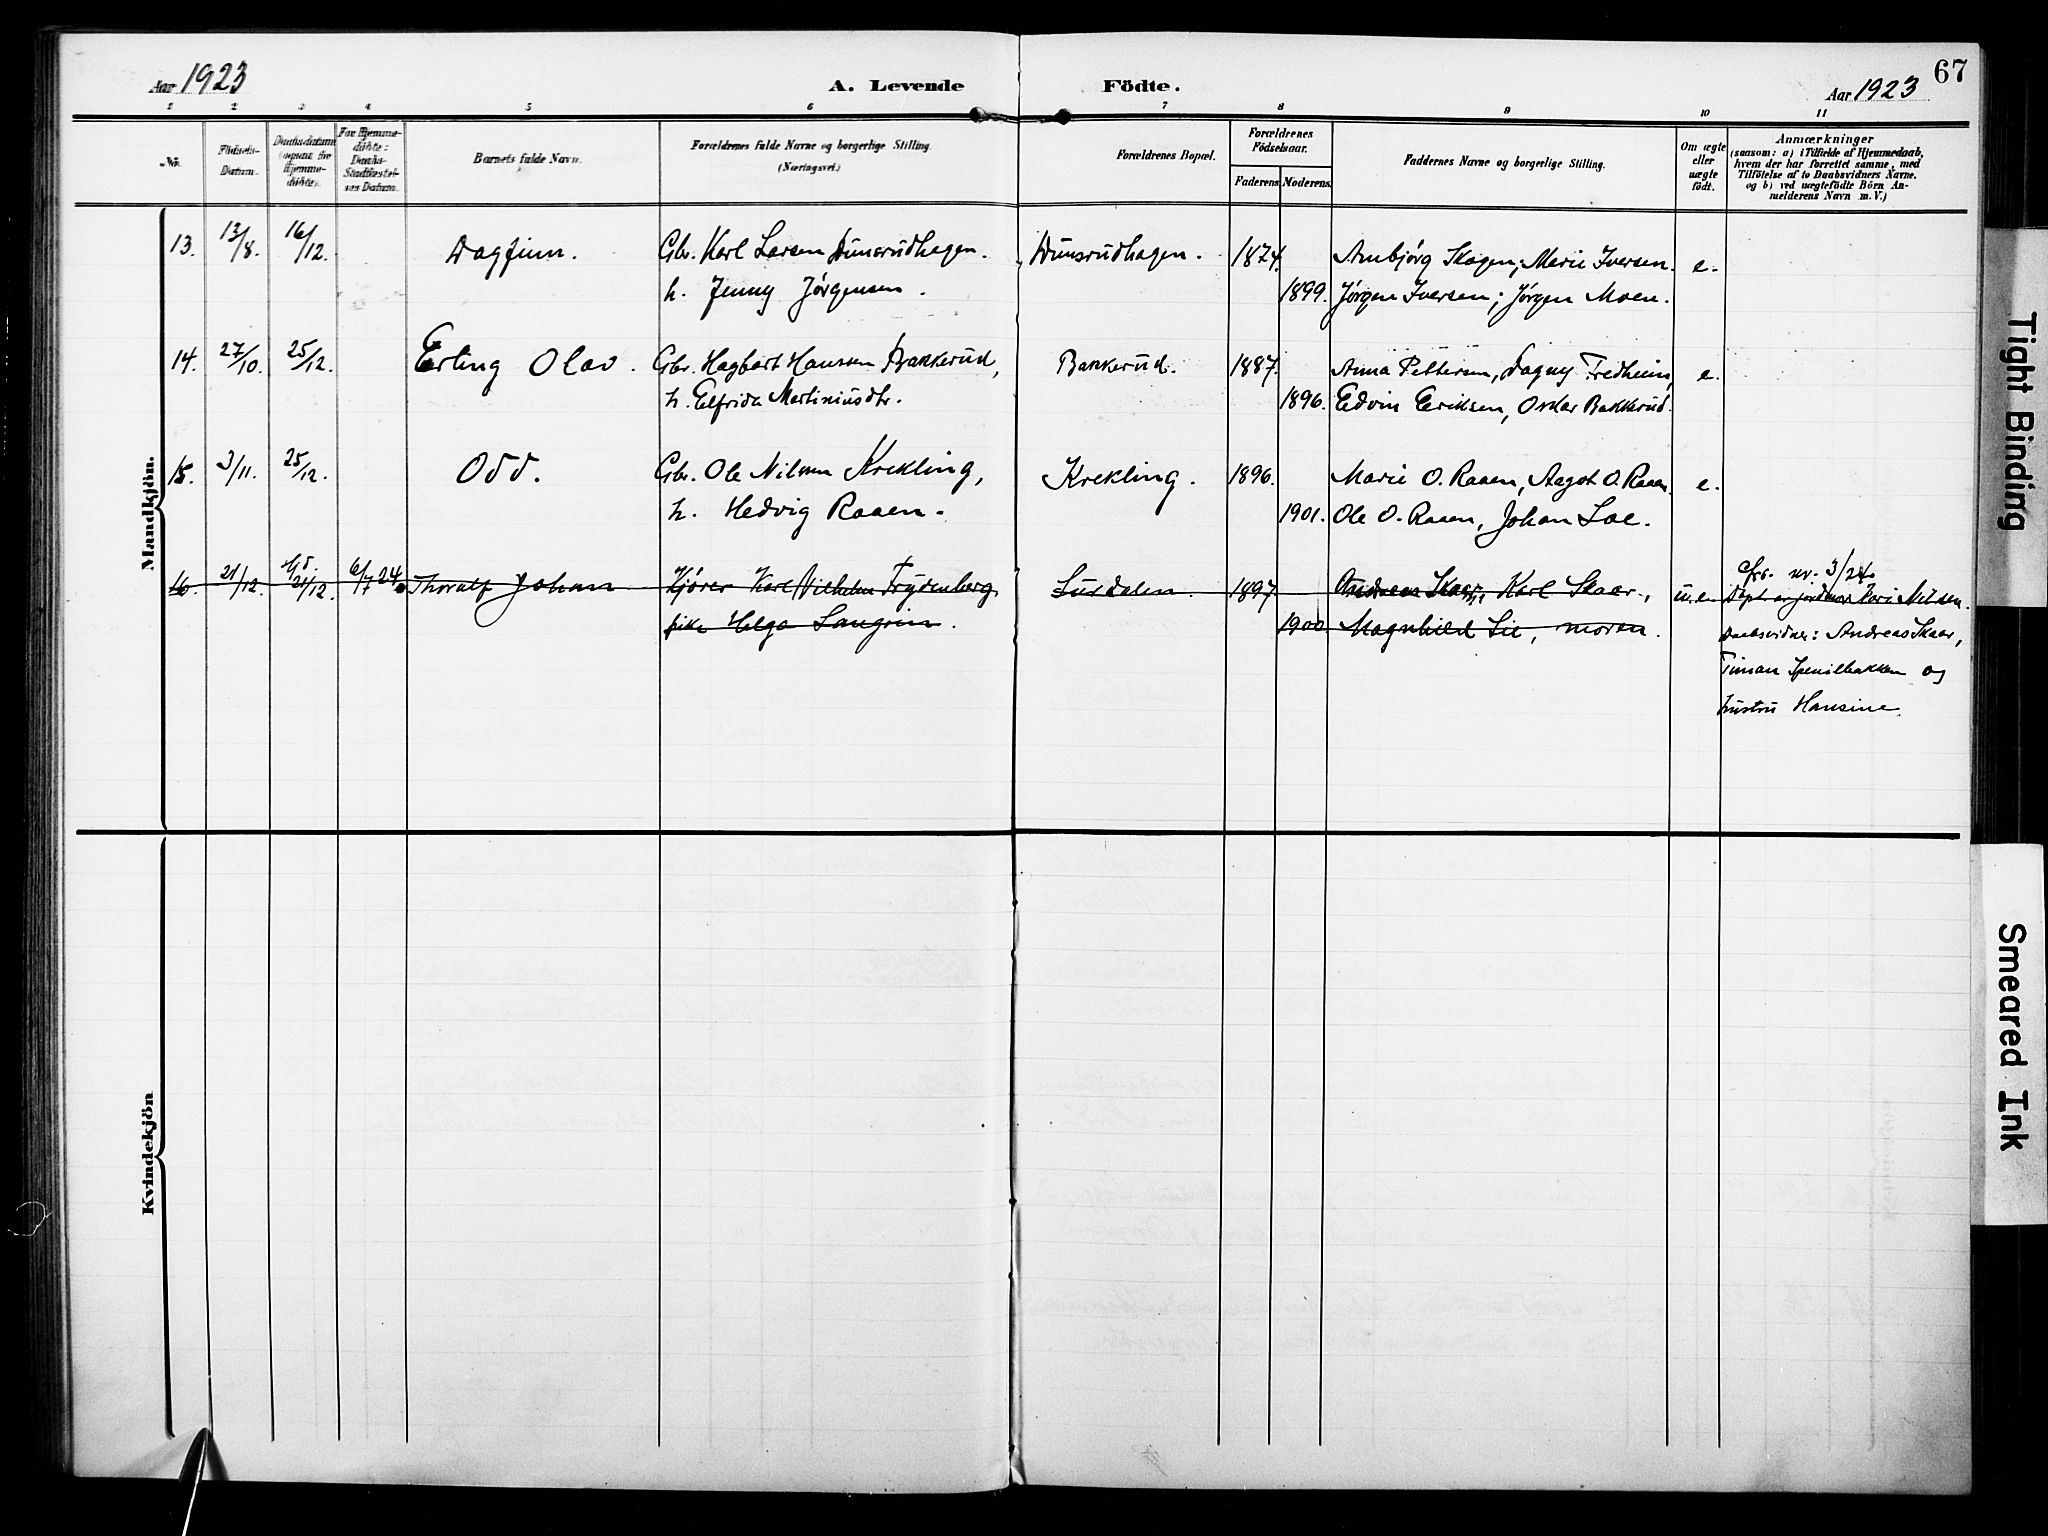 Aar 1923
A. Levende Födte.
Aar 1923
67
1 2 3 4 5 6 7 8 9 10 11
No.
Födsels-Datum.
Daabsdatum (ogsaa for Hjemme-döbte).
For Hjemme-döbte: Daabs-Stadfæstel-ses Datum.
Barnets fulde Navn.
Forældrenes fulde Navne og borgerlige Stilling.
(Næringsvei.)
Forældrenes Bopæl.
Forældrenes Födselsaar.
Faderens. Moderens.
Faddernes Navne og borgerlige Stilling.
Om ægte eller uægte födt.
Anmærkninger
(saasom: a) i Tilfælde af Hjemmedaab,
hvem der har forrettet samme, med
Tilföielse af to Daabsvidners Navne.
og b) ved uægtefödte Börn An-
melderens Navn m. V.)
Mandkjön.
13. 13/8. 16/12. Dagfinn. Gbr. Karl Larsen Dunsrudhagen. Dunsrudhagen. 1874. Arnbjørg Skagen; Marie Iversen. e.
h. Jenny Jørgensen. 1899. Jørgen Iversen; Jørgen Moen.
14. 27/10. 25/12. Erling Olav. Gbr. Hagbart Hansen Bakkerud, Bakkerud. 1887. Anna Pettersen, Dagny Fredheim, e.
h. Elfrida Martiniusdtr. 1896. Edvin Eriksen, Oskar Bakkerud.
15. 3/11. 25/12. Odd. Gbr. Ole Nilsen Krekling, Krekling. 1896. Marie O. Raaen, Aagot O. Raaen. e.
h. Hedvig Raaen. 1901. Ole O. Raaen, Johan Loe.
cfr. nr. 3/24.
16. 21/12. 21/12. 6/7 24. Thoralf Johan Kjører Karl Vilhelm Frydenberg Surdalen. 1897 Andreas Skaar, Karl Skaar, u.e. Døpt av jordmor Kari Nilsen.
pike Helga Langrim. 1900. Magnhild Lie, moren. Daabsvidner: Andreas Skaar,
Timan og
hustru Hansine.
Kvindekjön
Tight Binding
Smeared Ink